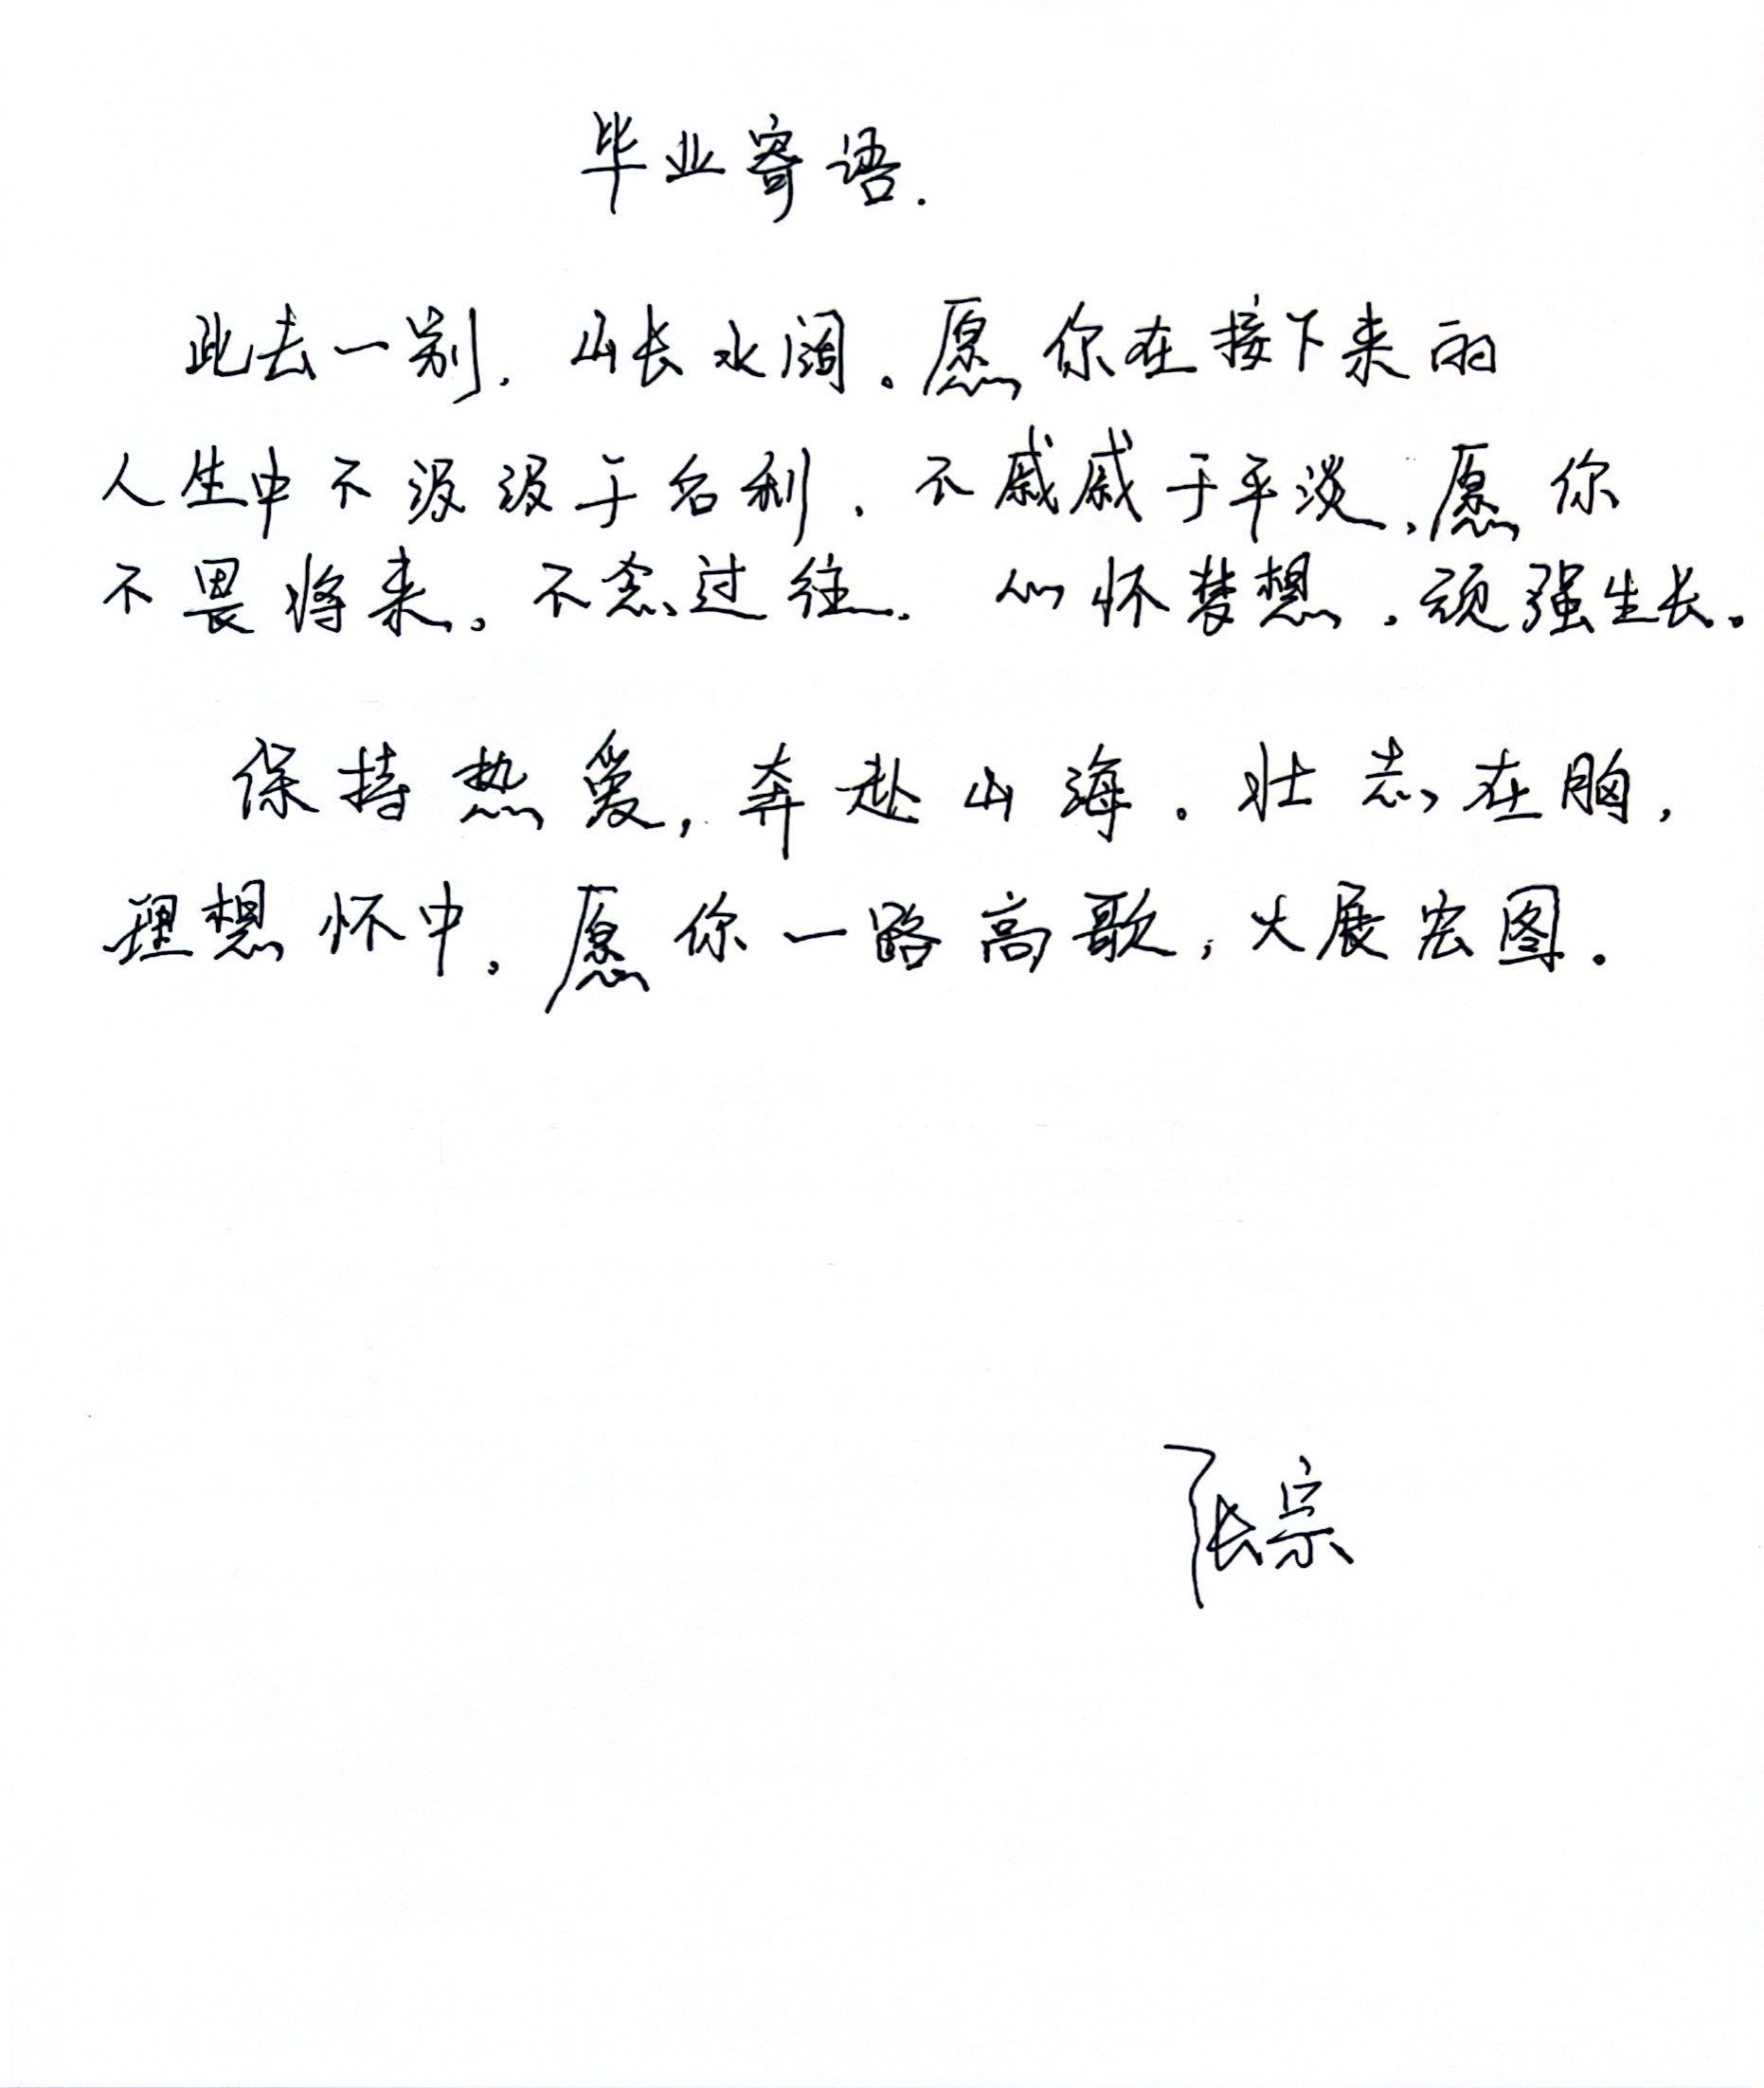 毕业寄语.
此去一别,山长水阔.愿你在接下来的
人生中不汲汲于名利,不戚戚于平淡,愿你
不畏将来,不念过往.心怀梦想,顽强生长.
保持热爱,奔赴山海.壮志在胸,
理想怀中,愿你一路高歌,大展宏图.
张宗